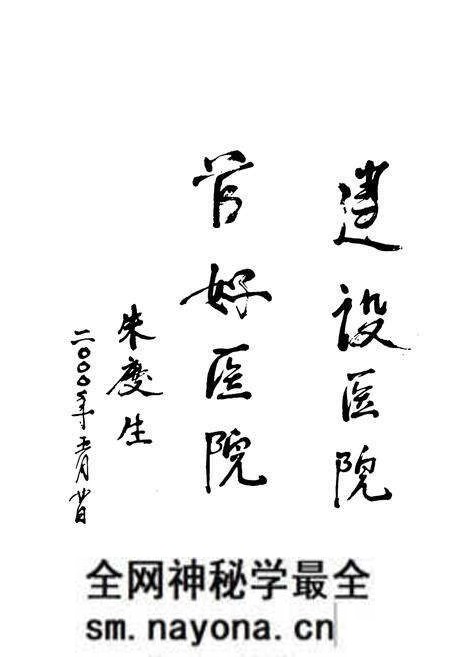 建设医院
管好医院
朱庆生
二〇〇〇年五月廿日
全网神秘学最全
sm.nayona.cn